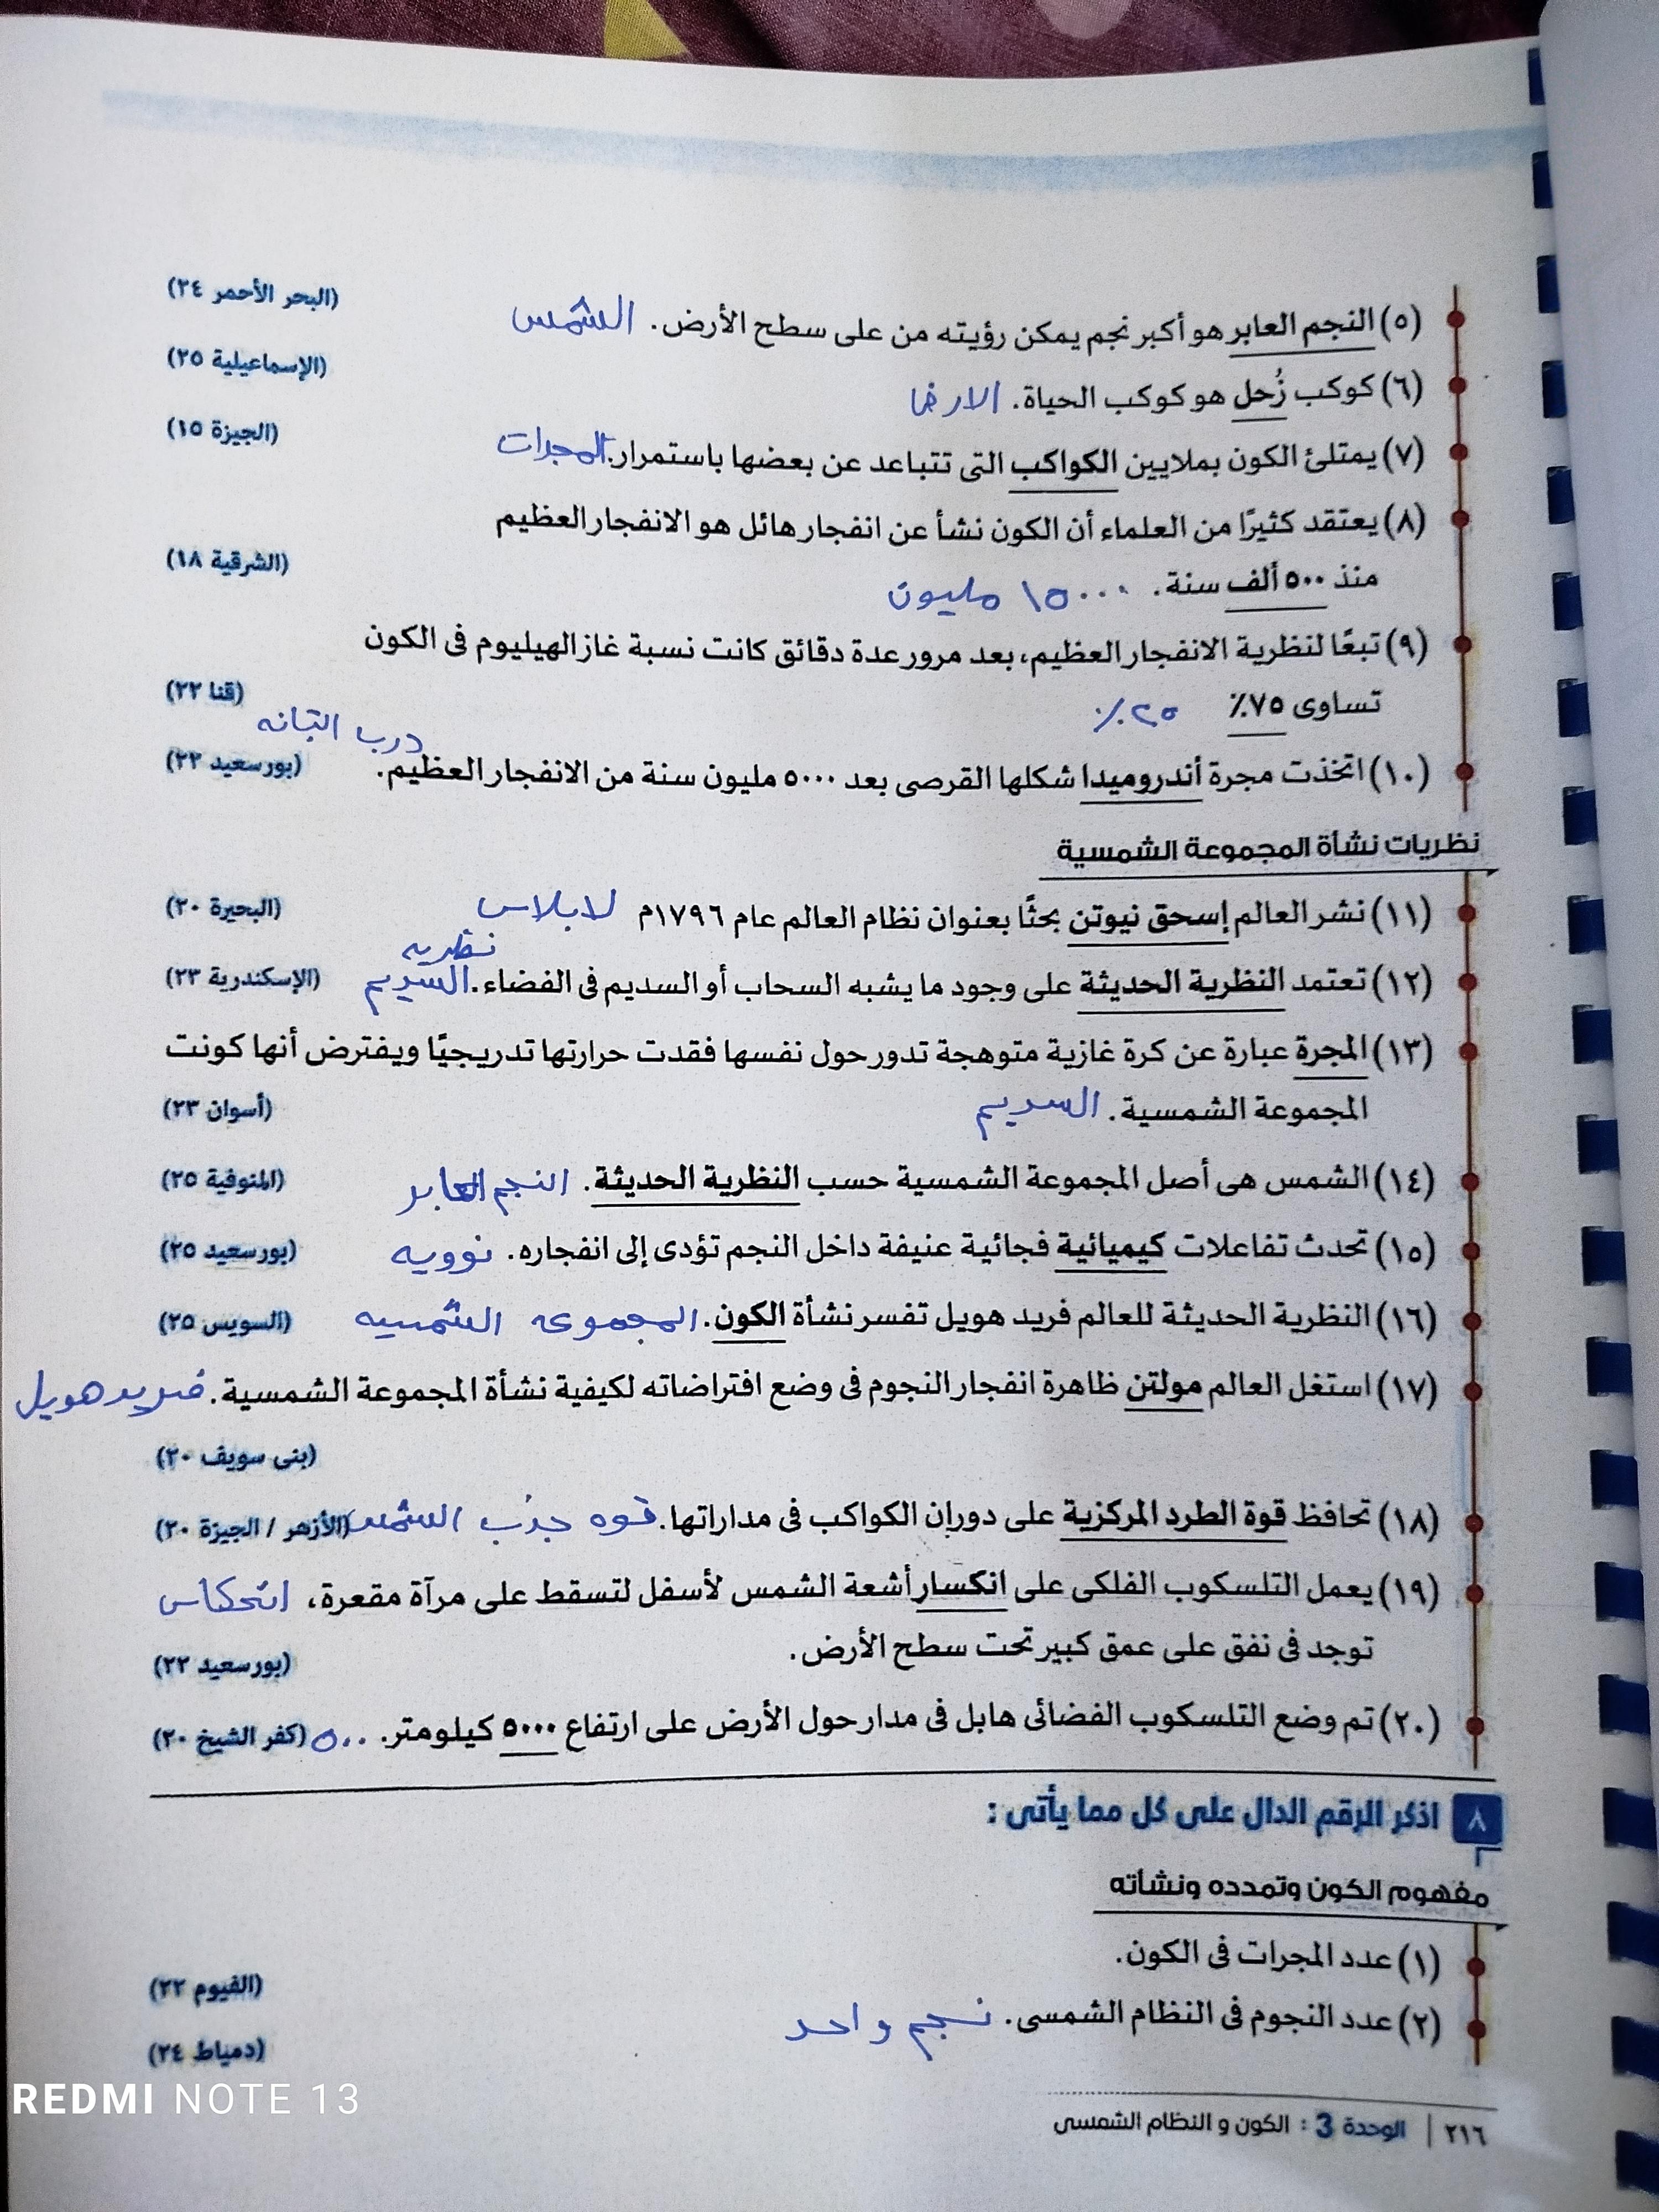 (البحر الأحمر ٢٤)
(٥) النجم العابر هو أكبر نجم يمكن رؤيته من على سطح الأرض. الشمس
(الإسماعيلية ٢٥)
(٦) كوكب زُحل هو كوكب الحياة. الارض
(الجيزة ١٥)
(٧) يمتلئ الكون بملايين الكواكب التى تتباعد عن بعضها باستمرار. المجرات
(٨) يعتقد كثيرًا من العلماء أن الكون نشأ عن انفجار هائل هو الانفجار العظيم
(الشرقية ١٨)
منذ ٥٠٠ ألف سنة. ١٥٠٠٠ مليون
(٩) تبعًا لنظرية الانفجار العظيم، بعد مرور عدة دقائق كانت نسبة غاز الهيليوم فى الكون
(قنا ٢٢)
تساوى ٧٥٪ ٢٥٪
درب التبانه
(١٠) اتخذت مجرة أندروميدا شكلها القرصى بعد ٥٠٠٠ مليون سنة من الانفجار العظيم. (بورسعيد ٢٢)
نظريات نشأة المجموعة الشمسية
(١١) نشر العالم إسحق نيوتن بحثًا بعنوان نظام العالم عام ١٧٩٦م لابلاس (البحيرة ٢٠)
نظريه
(١٢) تعتمد النظرية الحديثة على وجود ما يشبه السحاب أو السديم فى الفضاء. السديم (الإسكندرية ٢٣)
(١٣) المجرة عبارة عن كرة غازية متوهجة تدور حول نفسها فقدت حرارتها تدريجيًا ويفترض أنها كونت
المجموعة الشمسية. السديم (أسوان ٢٣)
(١٤) الشمس هى أصل المجموعة الشمسية حسب النظرية الحديثة. النجم العابر (المنوفية ٢٥)
(١٥) تحدث تفاعلات كيميائية فجائية عنيفة داخل النجم تؤدى إلى انفجاره. نوويه (بورسعيد ٢٥)
(١٦) النظرية الحديثة للعالم فريد هويل تفسر نشأة الكون. المجموعى الشمسيه (السويس ٢٥)
(١٧) استغل العالم مولتن ظاهرة انفجار النجوم فى وضع افتراضاته لكيفية نشأة المجموعة الشمسية. فريد هويل
(بنى سويف ٢٠)
(١٨) تحافظ قوة الطرد المركزية على دوران الكواكب فى مداراتها. قوه جذب الشمس (الأزهر / الجيزة ٢٠)
(١٩) يعمل التلسكوب الفلكى على انكسار أشعة الشمس لأسفل لتسقط على مرآة مقعرة، انعكاس
توجد فى نفق على عمق كبير تحت سطح الأرض.
(بورسعيد ٢٢)
(٢٠) تم وضع التلسكوب الفضائى هابل فى مدار حول الأرض على ارتفاع ٥٠٠٠ كيلومتر. ٥٠٠ (كفر الشيخ ٢٠)
٨ اذكر الرقم الدال على كل مما يأتى :
مفهوم الكون وتمدده ونشأته
(١) عدد المجرات فى الكون.
(الفيوم ٢٢)
(٢) عدد النجوم فى النظام الشمسى. نجم واحد
(دمياط ٢٤)
REDMI NOTE 13
٢١٦ | الوحدة 3 : الكون و النظام الشمسى